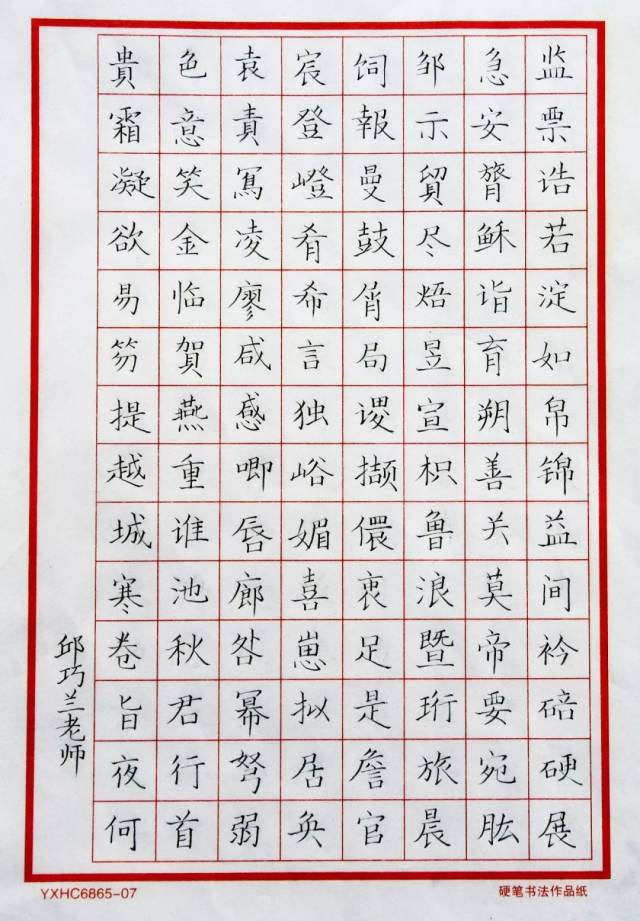 监票诰若淀如帛锦益间衿碚硬展
急安膂稣诣育朔善关莫帝要宛肱
邹示貿尽焐昱宣枳鲁浪暨珩旅晨
饲報曼鼓屑局谡撷儇衷足是詹官
宸登嶝肴希言独峪媚喜崽拟居奂
袁責寫凌廖咸感唧唇廊咎幂弩弱
色意笑金临賀燕重谁池秋君行首
貴霜凝欲易笏提越城寒卷旨夜何
邱巧兰老师
YXHC6865-07
硬笔书法作品纸